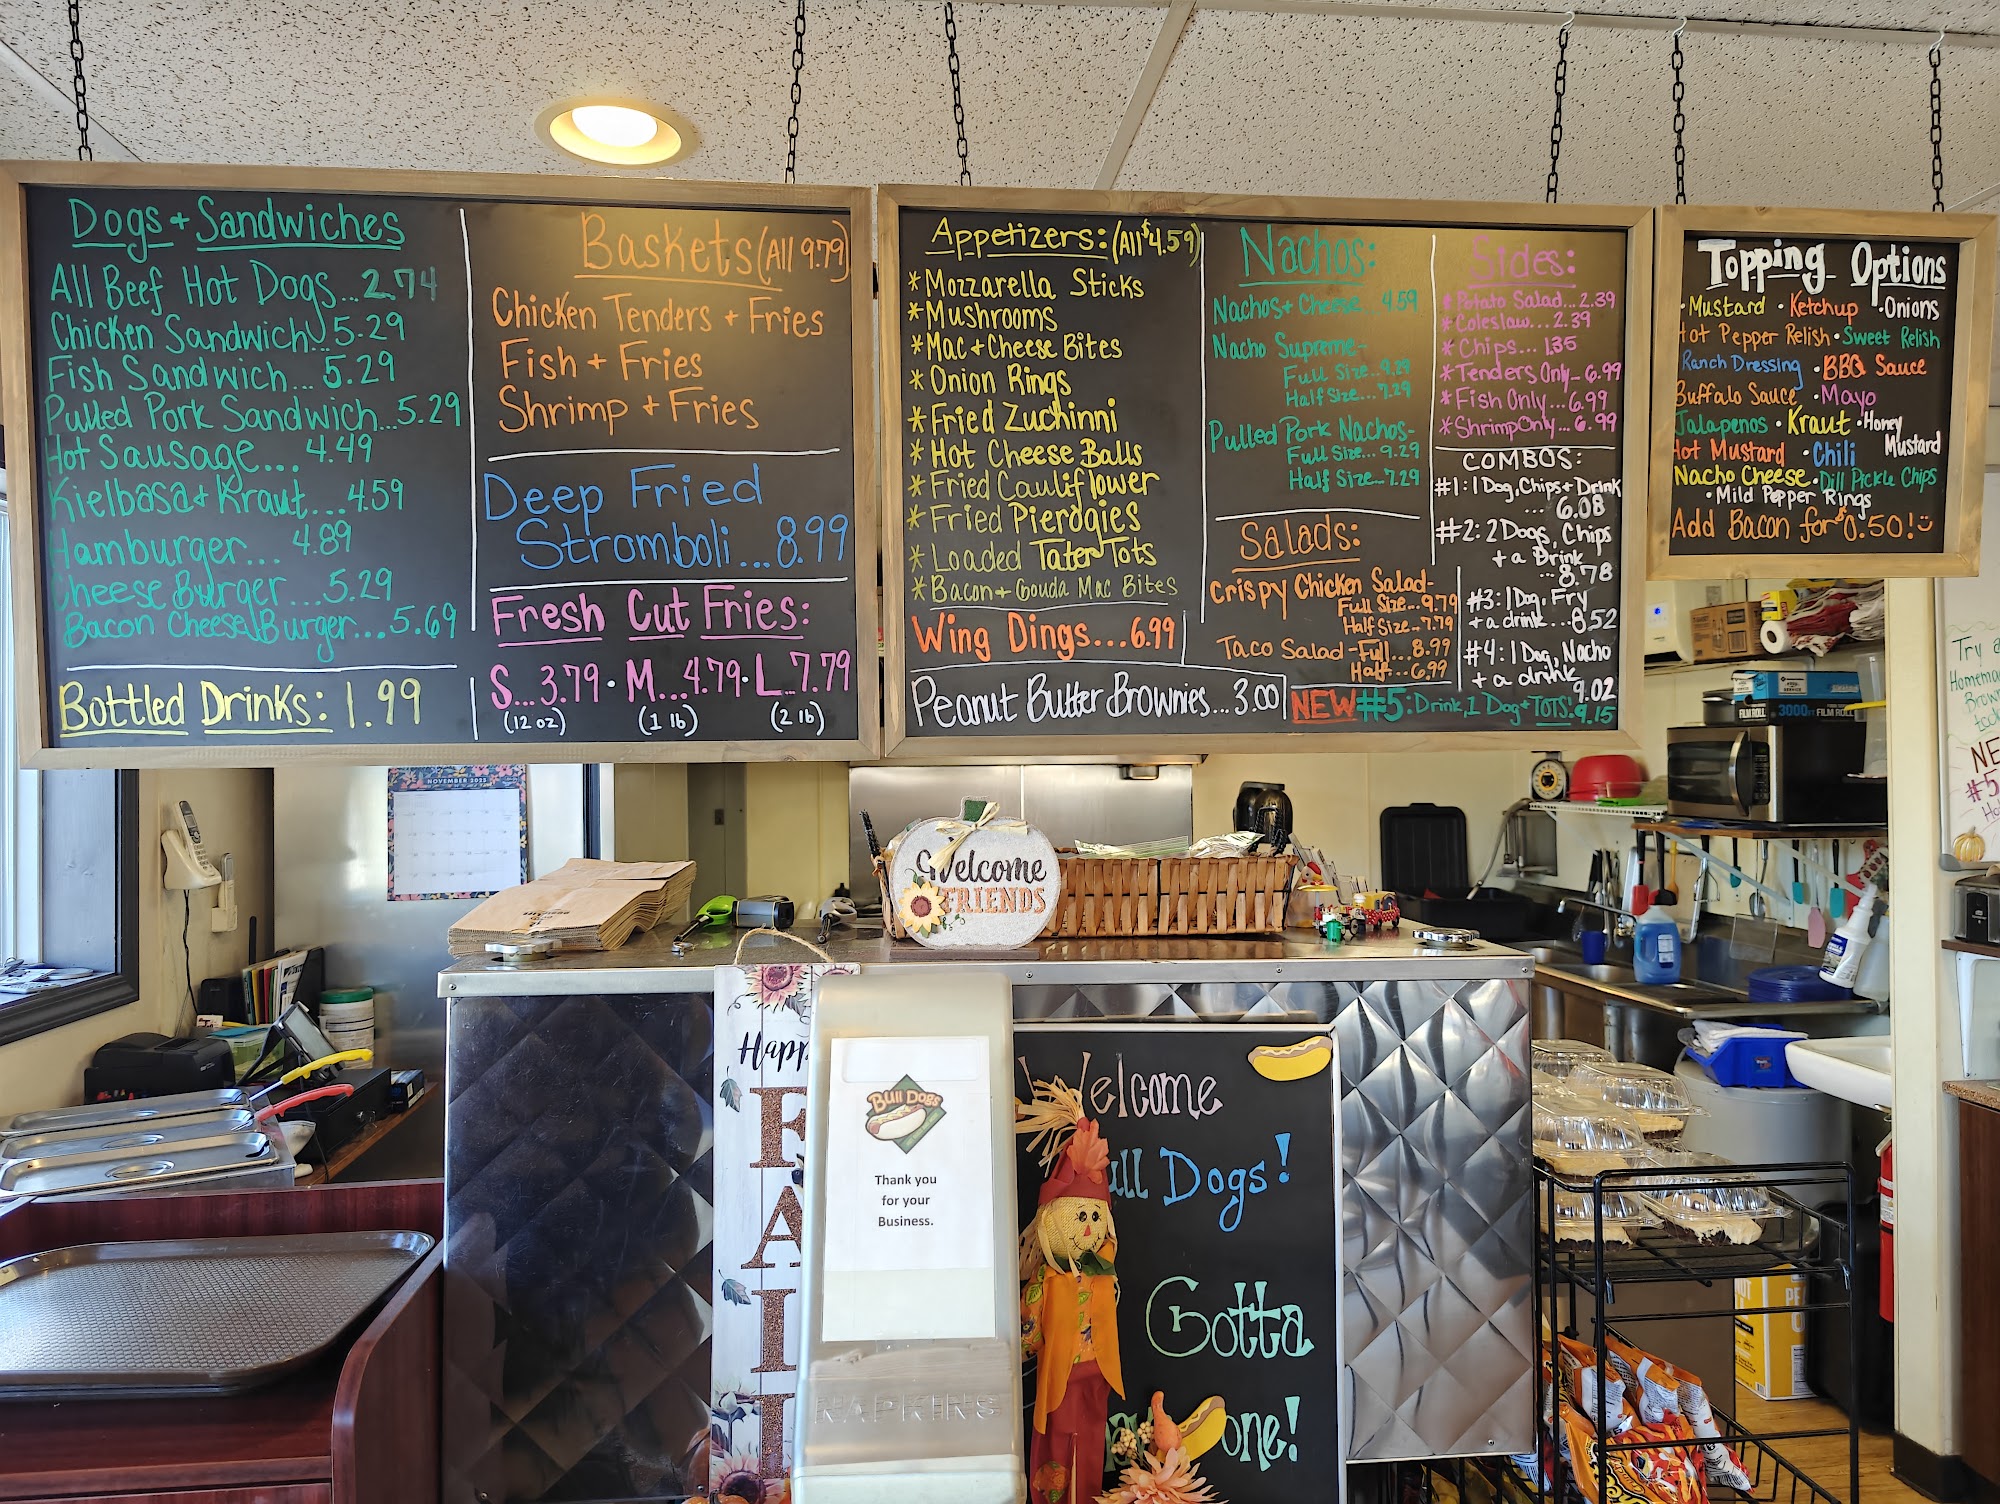 Dogs + Sandwiches
All Beef Hot Dogs...2.74
Chicken Sandwich...5.29
Fish Sandwich...5.29
Pulled Pork Sandwich...5.29
Hot Sausage...4.49
Kielbasa + Kraut...4.59
Hamburger...4.89
Cheese Burger...5.29
Bacon Cheese Burger...5.69
Bottled Drinks: 1.99
Baskets (All 9.79)
Chicken Tenders + Fries
Fish + Fries
Shrimp + Fries
Deep Fried
Stromboli...8.99
Fresh Cut Fries:
S...3.79 • M...4.79 • L...7.79
(12 oz) (1 lb) (2 lb)
Appetizers: (All $4.59)
*Mozzarella Sticks
*Mushrooms
*Mac + Cheese Bites
*Onion Rings
*Fried Zuchinni
*Hot Cheese Balls
*Fried Cauliflower
*Fried Pierogies
*Loaded Tater Tots
*Bacon + Gouda Mac Bites
Wing Dings....6.99
Peanut Butter Brownies...3.00
Nachos:
Nachos + Cheese...4.59
Nacho Supreme-
Full Size...9.29
Half Size...7.29
Pulled Pork Nachos-
Full Size...9.29
Half Size...7.29
Salads:
Crispy Chicken Salad-
Full Size...9.79
Half Size...7.79
Taco Salad-Full...8.99
Half...6.99
Sides:
*Potato Salad...2.39
*Coleslaw...2.39
*Chips...1.35
*Tenders Only...6.99
*Fish Only...6.99
*Shrimp Only...6.99
COMBOS:
#1: 1 Dog, Chips + Drink
...6.08
#2: 2 Dogs, Chips
+ a Drink
...8.78
#3: 1 Dog, Fry
+ a drink...8.52
#4: 1 Dog, Nacho
+ a drink
9.02
NEW #5: Drink, 1 Dog + TOTS! 9.15
Topping Options
•Mustard •Ketchup •Onions
Hot Pepper Relish •Sweet Relish
Ranch Dressing •BBQ Sauce
Buffalo Sauce •Mayo
Jalapenos •Kraut •Honey
Mustard
Hot Mustard •Chili
Nacho Cheese •Dill Pickle Chips
•Mild Pepper Rings
Add Bacon for $0.50!
Try a
Homema
Brown
NE
#5
NOVEMBER 2025
Welcome
FRIENDS
3000FT FILM ROLL
Happ
FALL
Bull Dogs
Thank you
for your
Business.
NAPKINS
Welcome
ull Dogs!
Gotta
one!